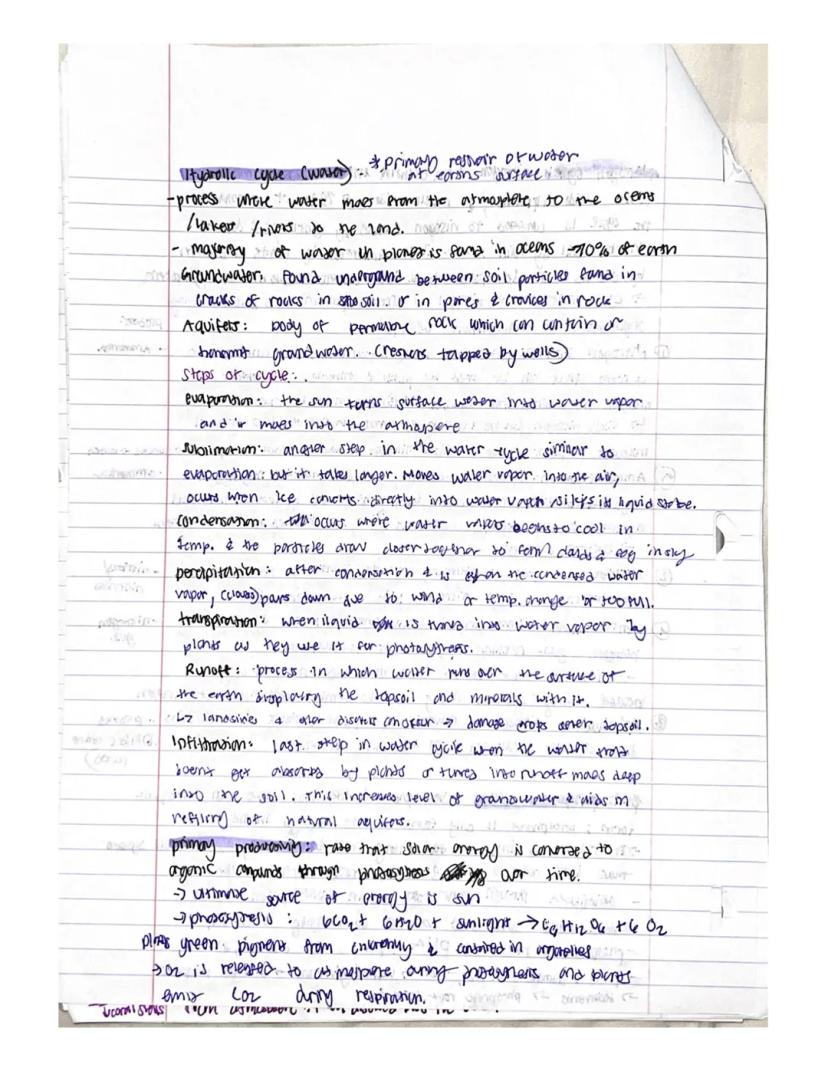 Hydrolic cycle (water): *primary resevoir of water
at earths surface
-process where water moves from the atmosphere, to the oceans
/lakes /rivers to the land.
- majority of water in planet is found in oceans →70% of earth
Groundwater: found underground between soil particles found in
cracks of rocks in soil. or in pores & crovices in rock
Aquifers: body of permeable rock which can contain or
transmit groundwater. (resevoirs tapped by wells)
Steps of cycle:
evaporation: the sun turns surface water into water vapor
and it moves into the atmosphere
Sublimation: another step in the water cycle similar to
evaporation: but it takes longer. Moves water vapor into the air,
occurs when ice converts directly into water vapor its liquid state.
Condensation: occurs where water vapors begins to cool in
temp. & the particles draw closer together to form clouds & fog in sky
percipitation: after condensation & is when the condensed water
vapor, (clouds) pours down due to wind or temp. change or too full.
transpiration: when liquid is turned into water vapor by
plants as they use it for photosythesis.
Runoff: process in which water runs over the surface of
the earth displacing the topsoil and minerals with it.
↳ landslides & other disasters can occur → damage crops topsoil.
Infiltration: last step in water cycle when the water that
doesnt get absorbed by plants or turned into runoff moves deep
into the soil. This increases level of groundwater & aids in
refilling of natural aquifers.
primary productivity: rate that solar energy is converted to
organic compunds through photosythesis over time.
→ ultimate source of energy is sun
→ photosythesis : 6CO2 + 6H2O + sunlight → C6H12O6 + 6 O2
green pigment from & contained in organelles
→ O2 is released to atmosphere during photosythesis and plants
emit CO2 during respiration.